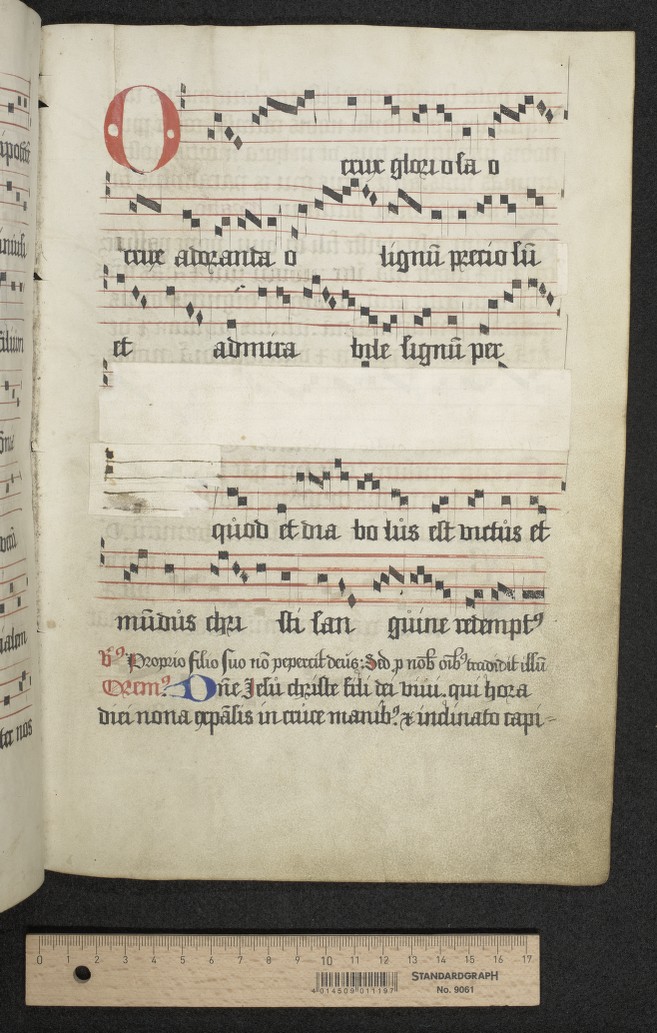 O crux gloriosa o
crux adoranda o lignū preciosū
et admira bile signū per
quod et dia bolus est victus et
mūdus chri sti san guine redemptꝰ
Proprio filio suo nō pepercit deus: Sed ꝓ nob̄ oīb' tradidit illū
Orem'. Dn̄e Jesu christe fili dei viui. qui hora
diei nona expāsis in cruce manib' ⁊ inclinato capi-
ipostol
tilium
nos
0 1 2 3 4 5 6 7 8 9 10 11 12 13 14 15 16 17
4 014509 011197
STANDARDGRAPH
No. 9061